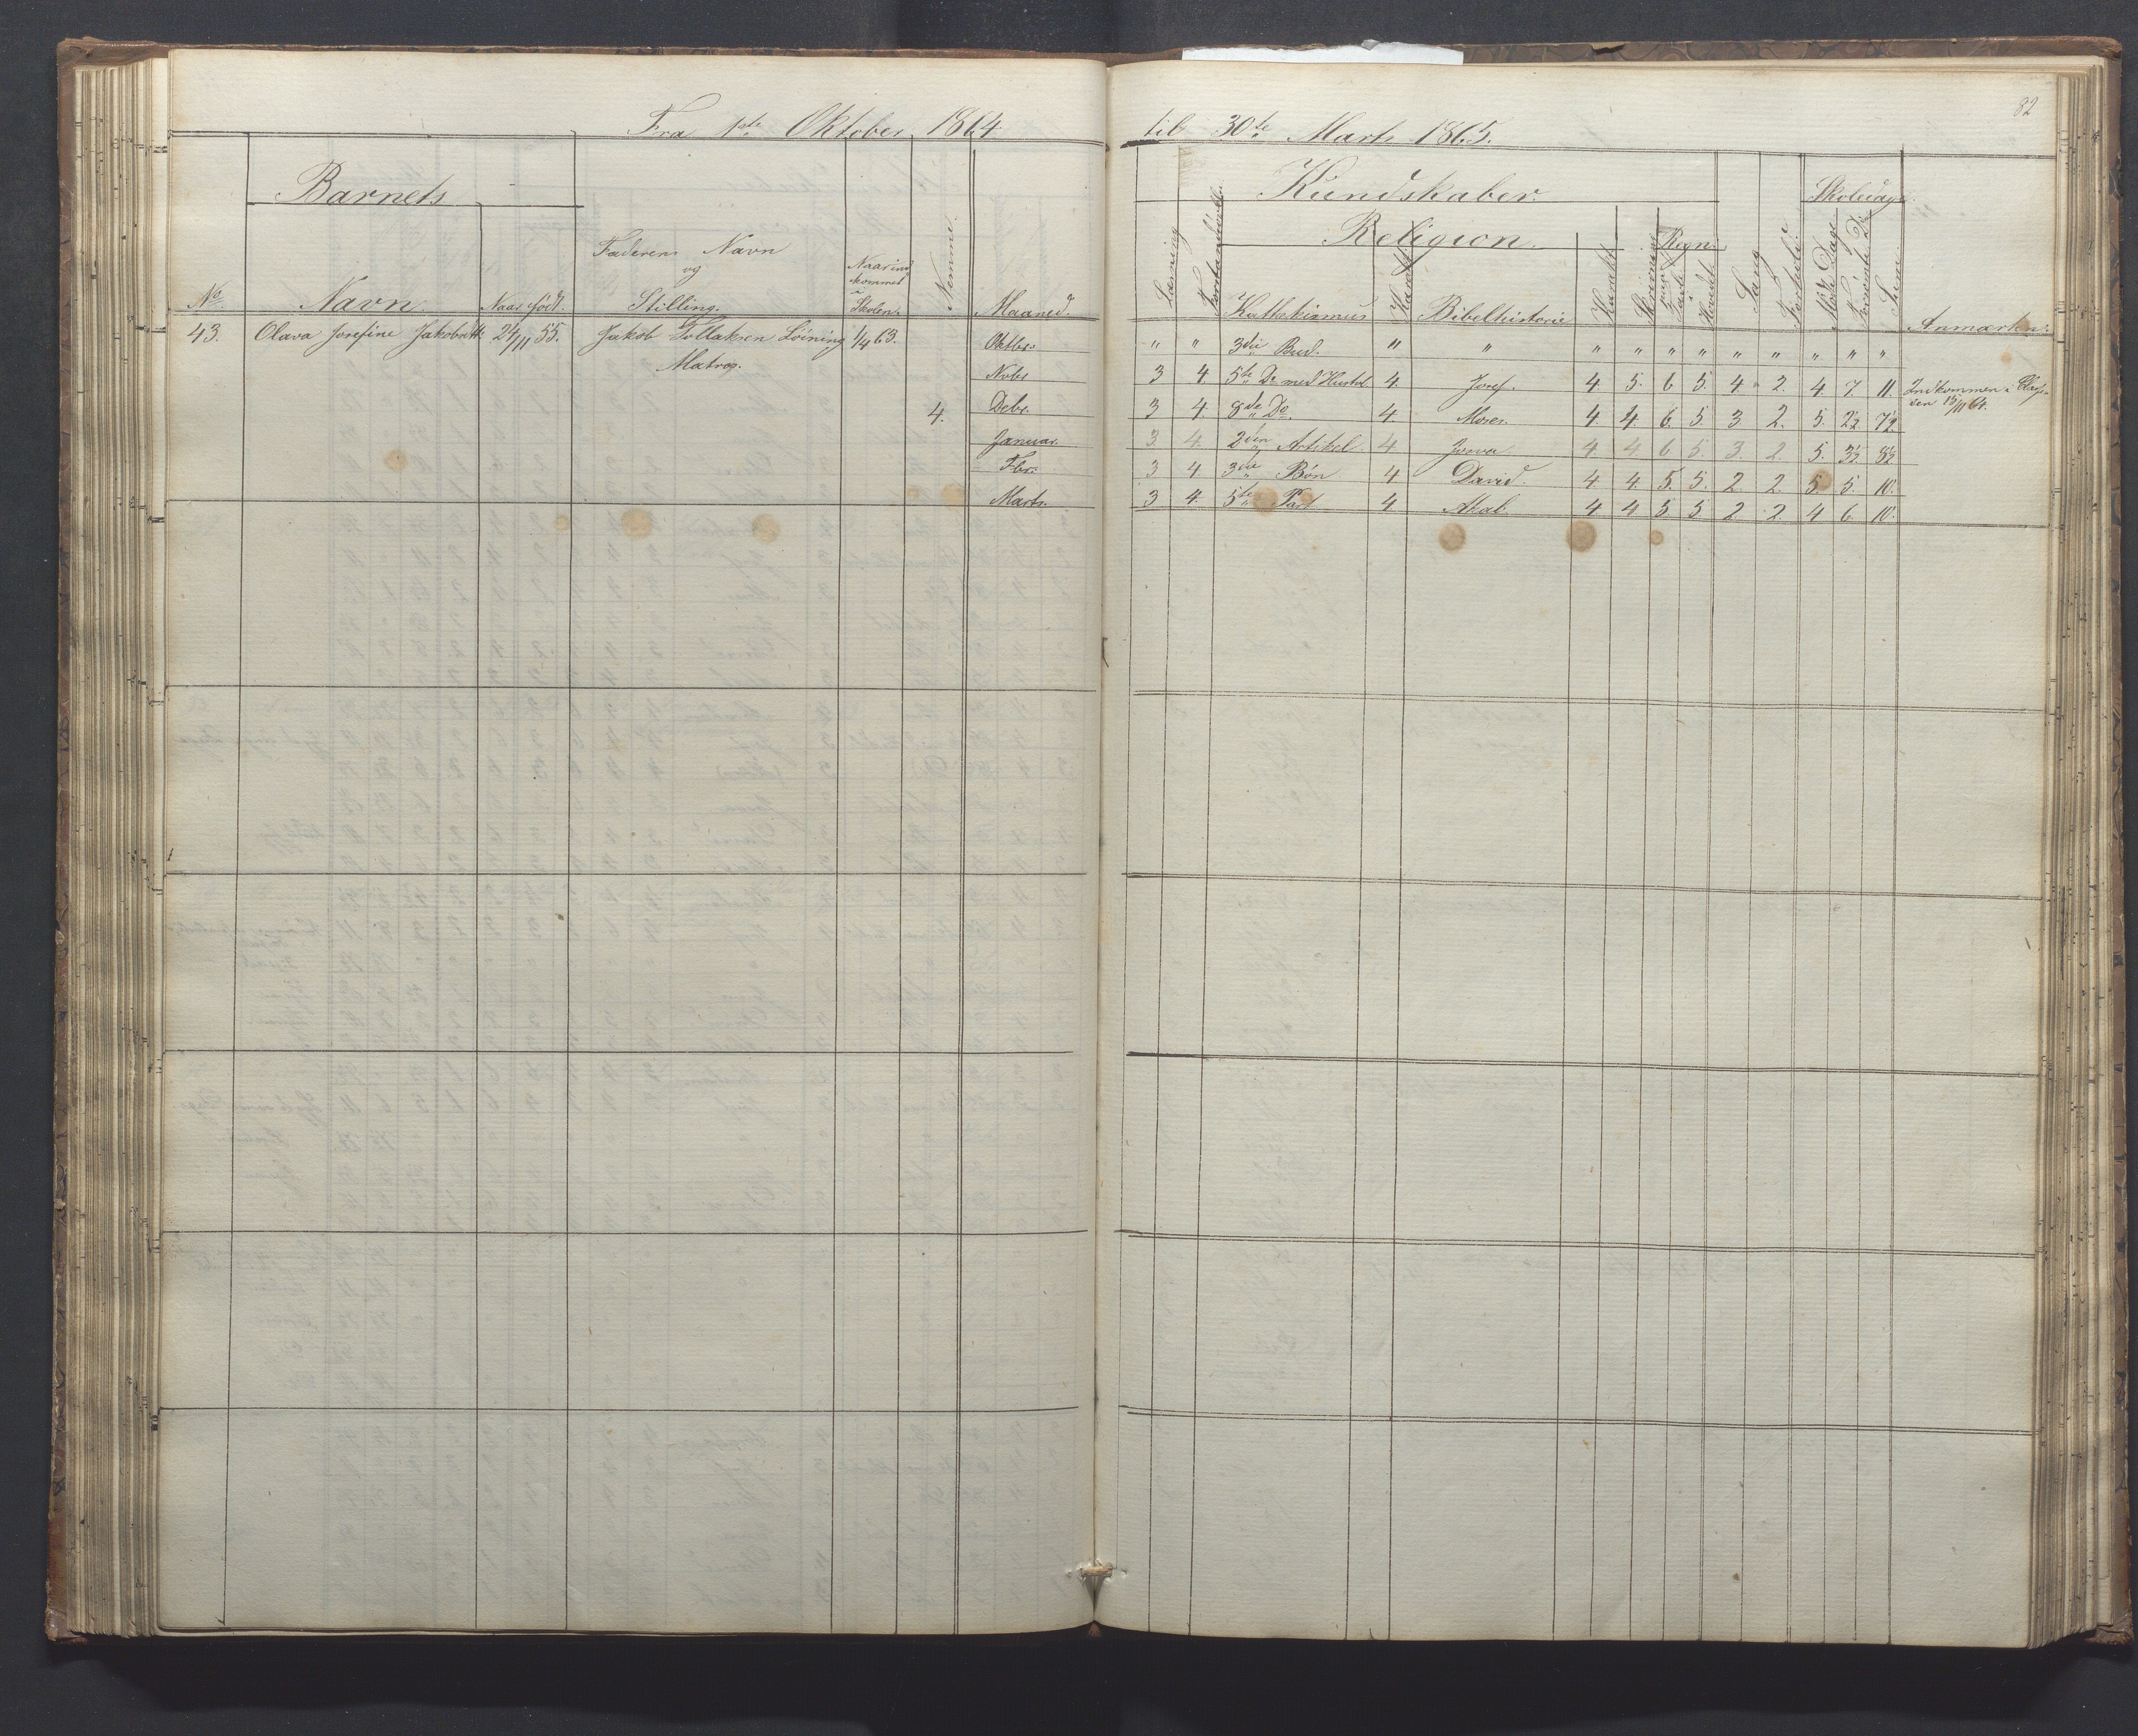 82
Fra 1ste Oktober 1864 til 30te Marts 1865.
Barnets
Kundskaber.
Skoledage.
Religion.
Regn.
No. Navn. Naar født. Faderens Navn og Stilling. Naar indkommet i Skolen. Nemme. Maaned. Læsning Forstandsøvelse Kattekismus Karakt. Bibelhistorie Karakt. Skrivning paa Tavle i Hovedet Sang Forhold Mødte Dage Forsømte Do Sum Anmærkn:
43. Olava Josefine Jakobsdtt: 24/11 55. Jakob Tollaksen Löining 1/4 63. Oktbr: " " 3die Bud. " " " " " " " " " " "
Matros.
Nvbr 3 4. 5te Do med Hustvl 4. Josef. 4. 5. 6 5. 4 2. 4. 7. 11. Indkommen i Klassen den 15/11 64.
4. Debr. 3 4. 8de Do. 4. Moses. 4. 4 6. 5. 3 2. 5. 2½ 7½.
Januar. 3. 4. 2den Artikel. 4 Josva 4 4 6 5. 3. 2. 5. 3½ 8½
Fbr: 3 4 3die Bøn 4 David. 4. 4. 5. 5. 2. 2. 5 5. 10.
Marts. 3 4. 5te Part 4 Akab. 4 4 5 5 2 2 4 6. 10.